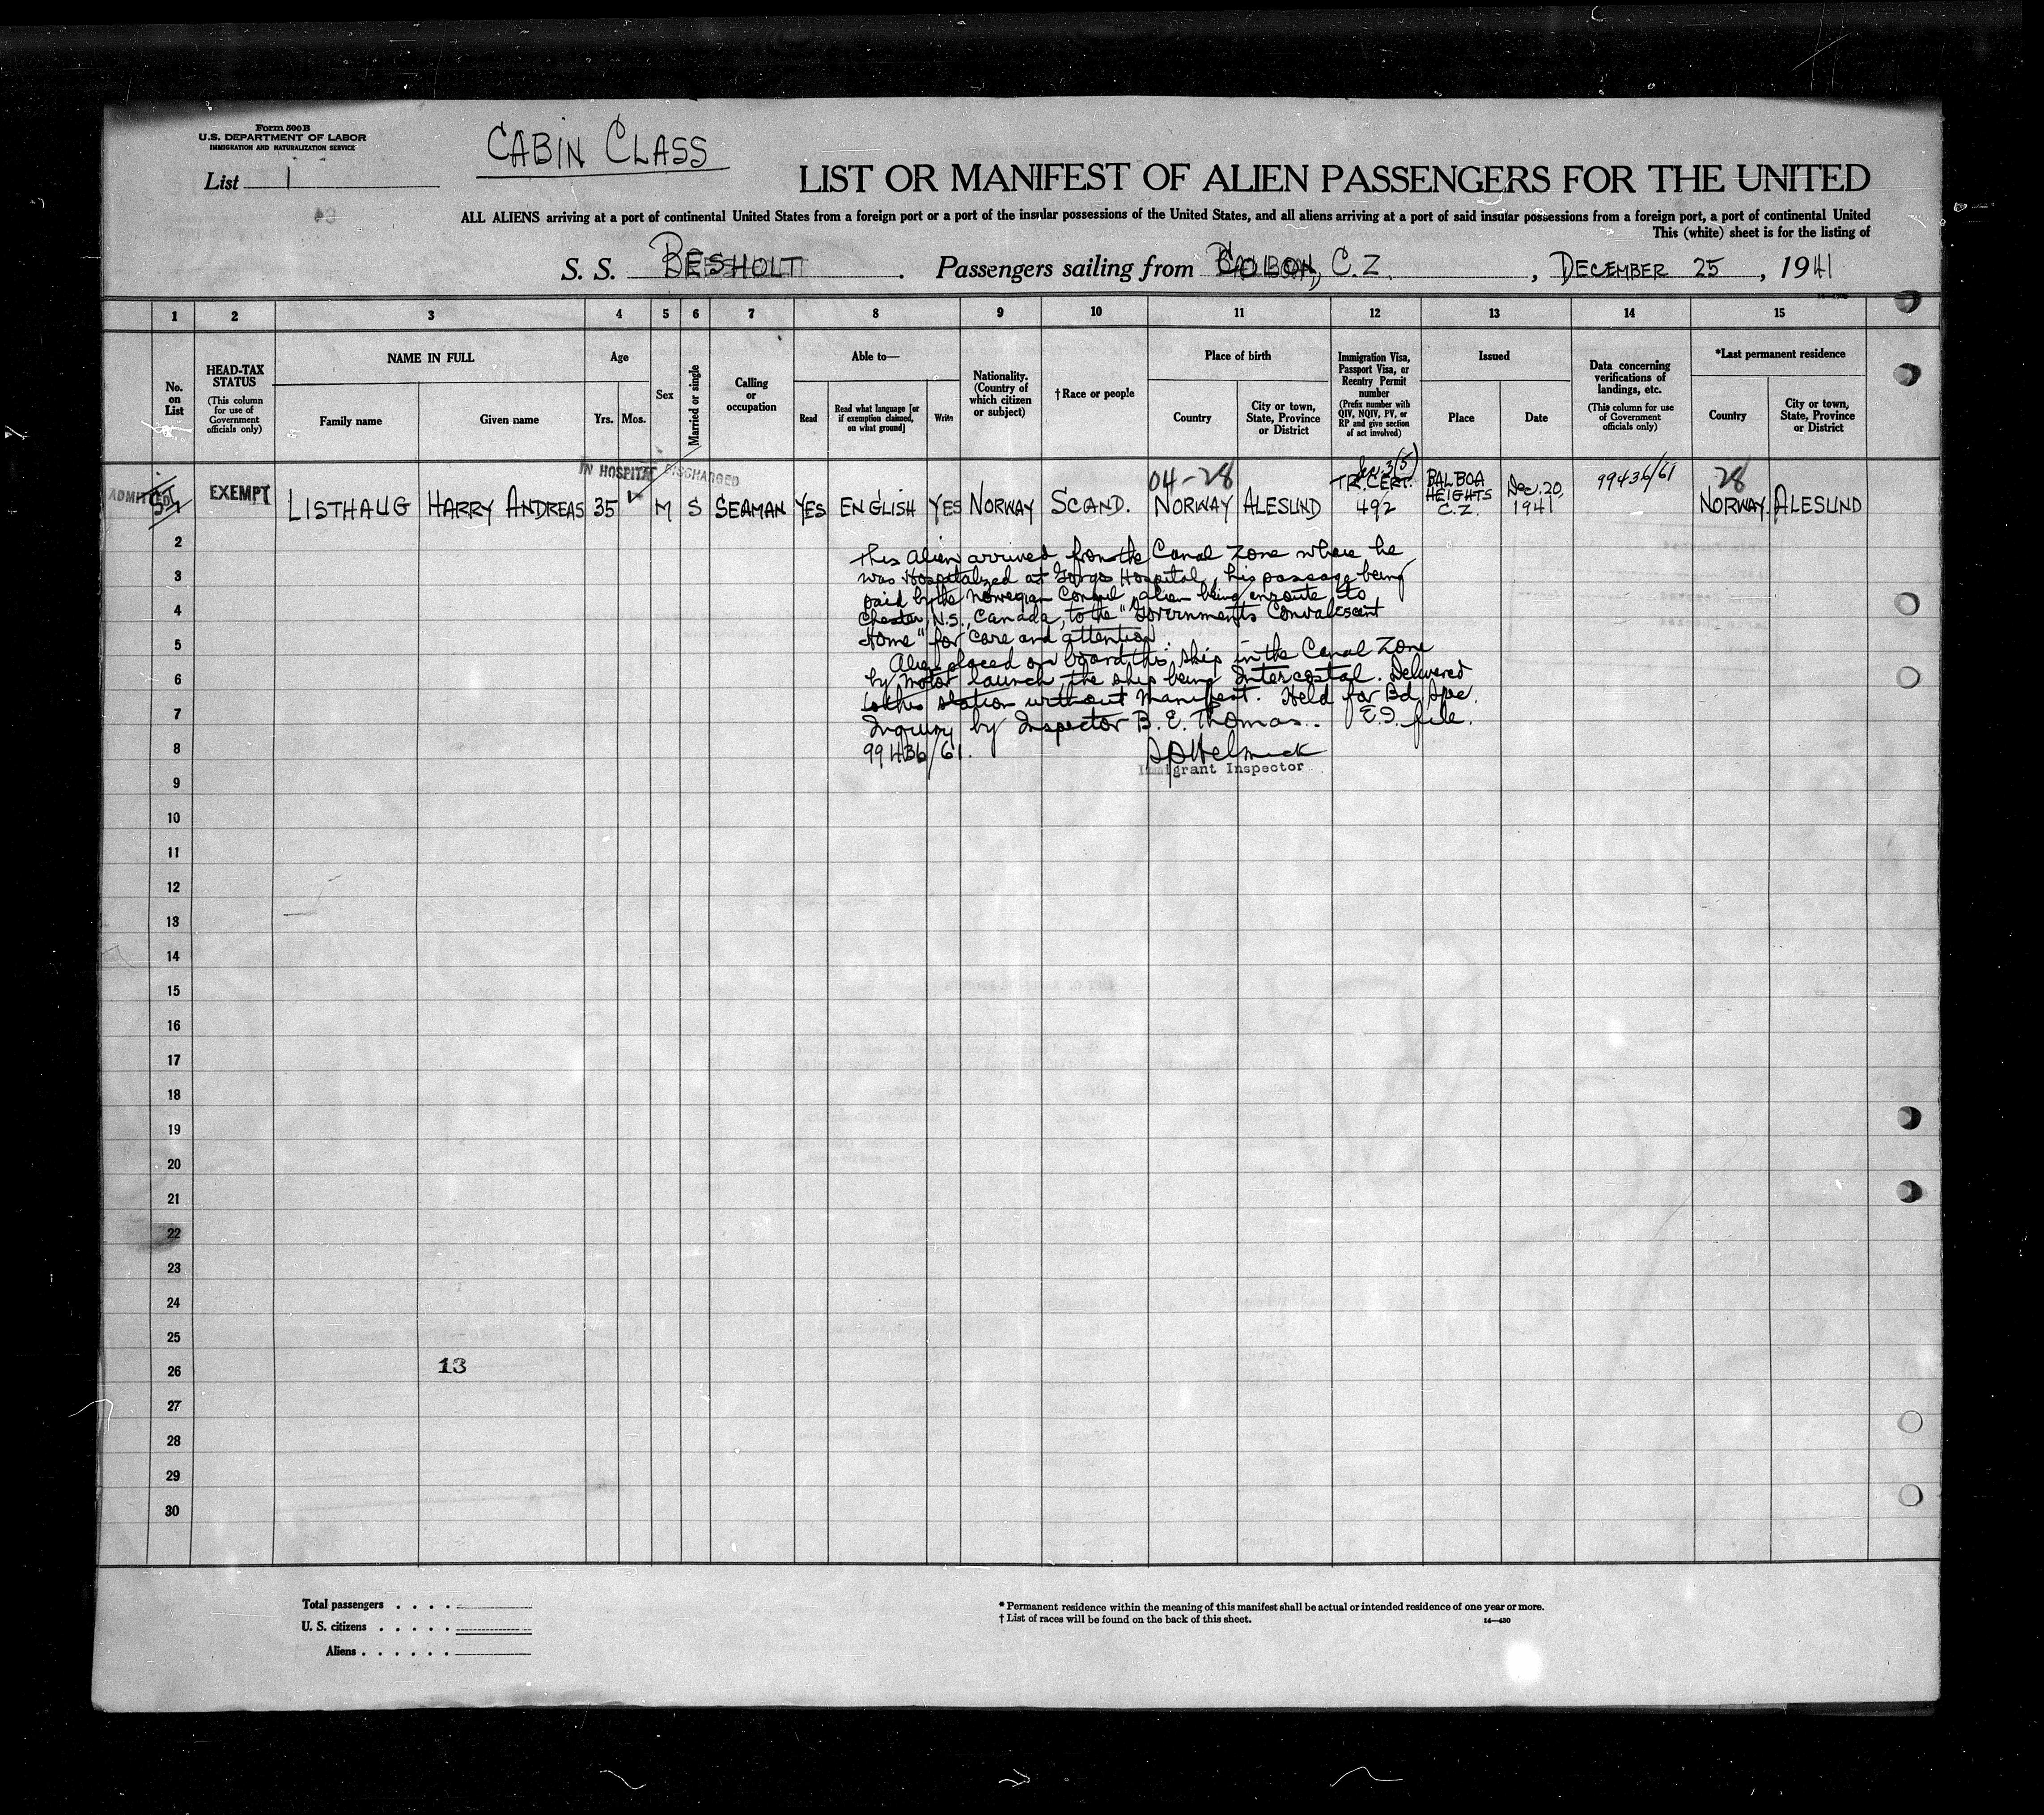 Form 500B
U.S. DEPARTMENT OF LABOR
IMMIGRATION AND NATURALIZATION SERVICE
CABIN CLASS
List 1
LIST OR MANIFEST OF ALIEN PASSENGERS FOR THE UNITED
ALL ALIENS arriving at a port of continental United States from a foreign port or a port of the insular possessions of the United States, and all aliens arriving at a port of said insular possessions from a foreign port, a port of continental United
This (white) sheet is for the listing of
S. S. BESHOLT . Passengers sailing from C. Z. , DECEMBER 25 , 1941
1 2 3 4 5 6 7 8 9 10 11 12 13 14 15
No. on List
HEAD-TAX STATUS (This column for use of Government officials only)
NAME IN FULL
Family name
Given name
Age
Yrs. Mos.
Sex
Married or single
Calling or occupation
Able to—
Read
Read what language [or if exemption claimed, on what ground]
Write
Nationality. (Country of which citizen or subject)
†Race or people
Place of birth
Country
City or town, State, Province or District
Immigration Visa, Passport Visa, or Reentry Permit number (Prefix number with QIV, NQIV, PV, or RP and give section of act involved)
Issued
Place
Date
Data concerning verifications of landings, etc. (This column for use of Government officials only)
*Last permanent residence
Country
City or town, State, Province or District
IN HOSPITAL DISCHARGED
04-28
Sec. 3(5)
99436/61
28
ADMITTED EXEMPT LISTHAUG HARRY ANDREAS 35 M S SEAMAN YES ENGLISH YES NORWAY SCAND. NORWAY ALESUND TR. CERT. 492 BALBOA HEIGHTS C.Z. Dec. 20, 1941 NORWAY. ALESUND
This alien arrived from the Canal Zone where he
was Hospitalized at Gorgas Hospital, his passage being
paid by the Norwegian Consul, alien being enroute to
Chester, N.S., Canada, to the "Governments Convalescent
Home" for care and attention.
Alien placed on board this ship in the Canal Zone
by motor launch the ship being Intercostal. Delivered
to this station without manifest. Held for Bd. Spe.
Inquiry by Inspector B. E. Thomas. E.I. file.
99436/61.
Immigrant Inspector
2
3
4
5
6
7
8
9
10
11
12
13
14
15
16
17
18
19
20
21
22
23
24
25
26
13
27
28
29
30
Total passengers . . . .
U. S. citizens . . . . .
Aliens . . . . . .
* Permanent residence within the meaning of this manifest shall be actual or intended residence of one year or more.
† List of races will be found on the back of this sheet.
14—430